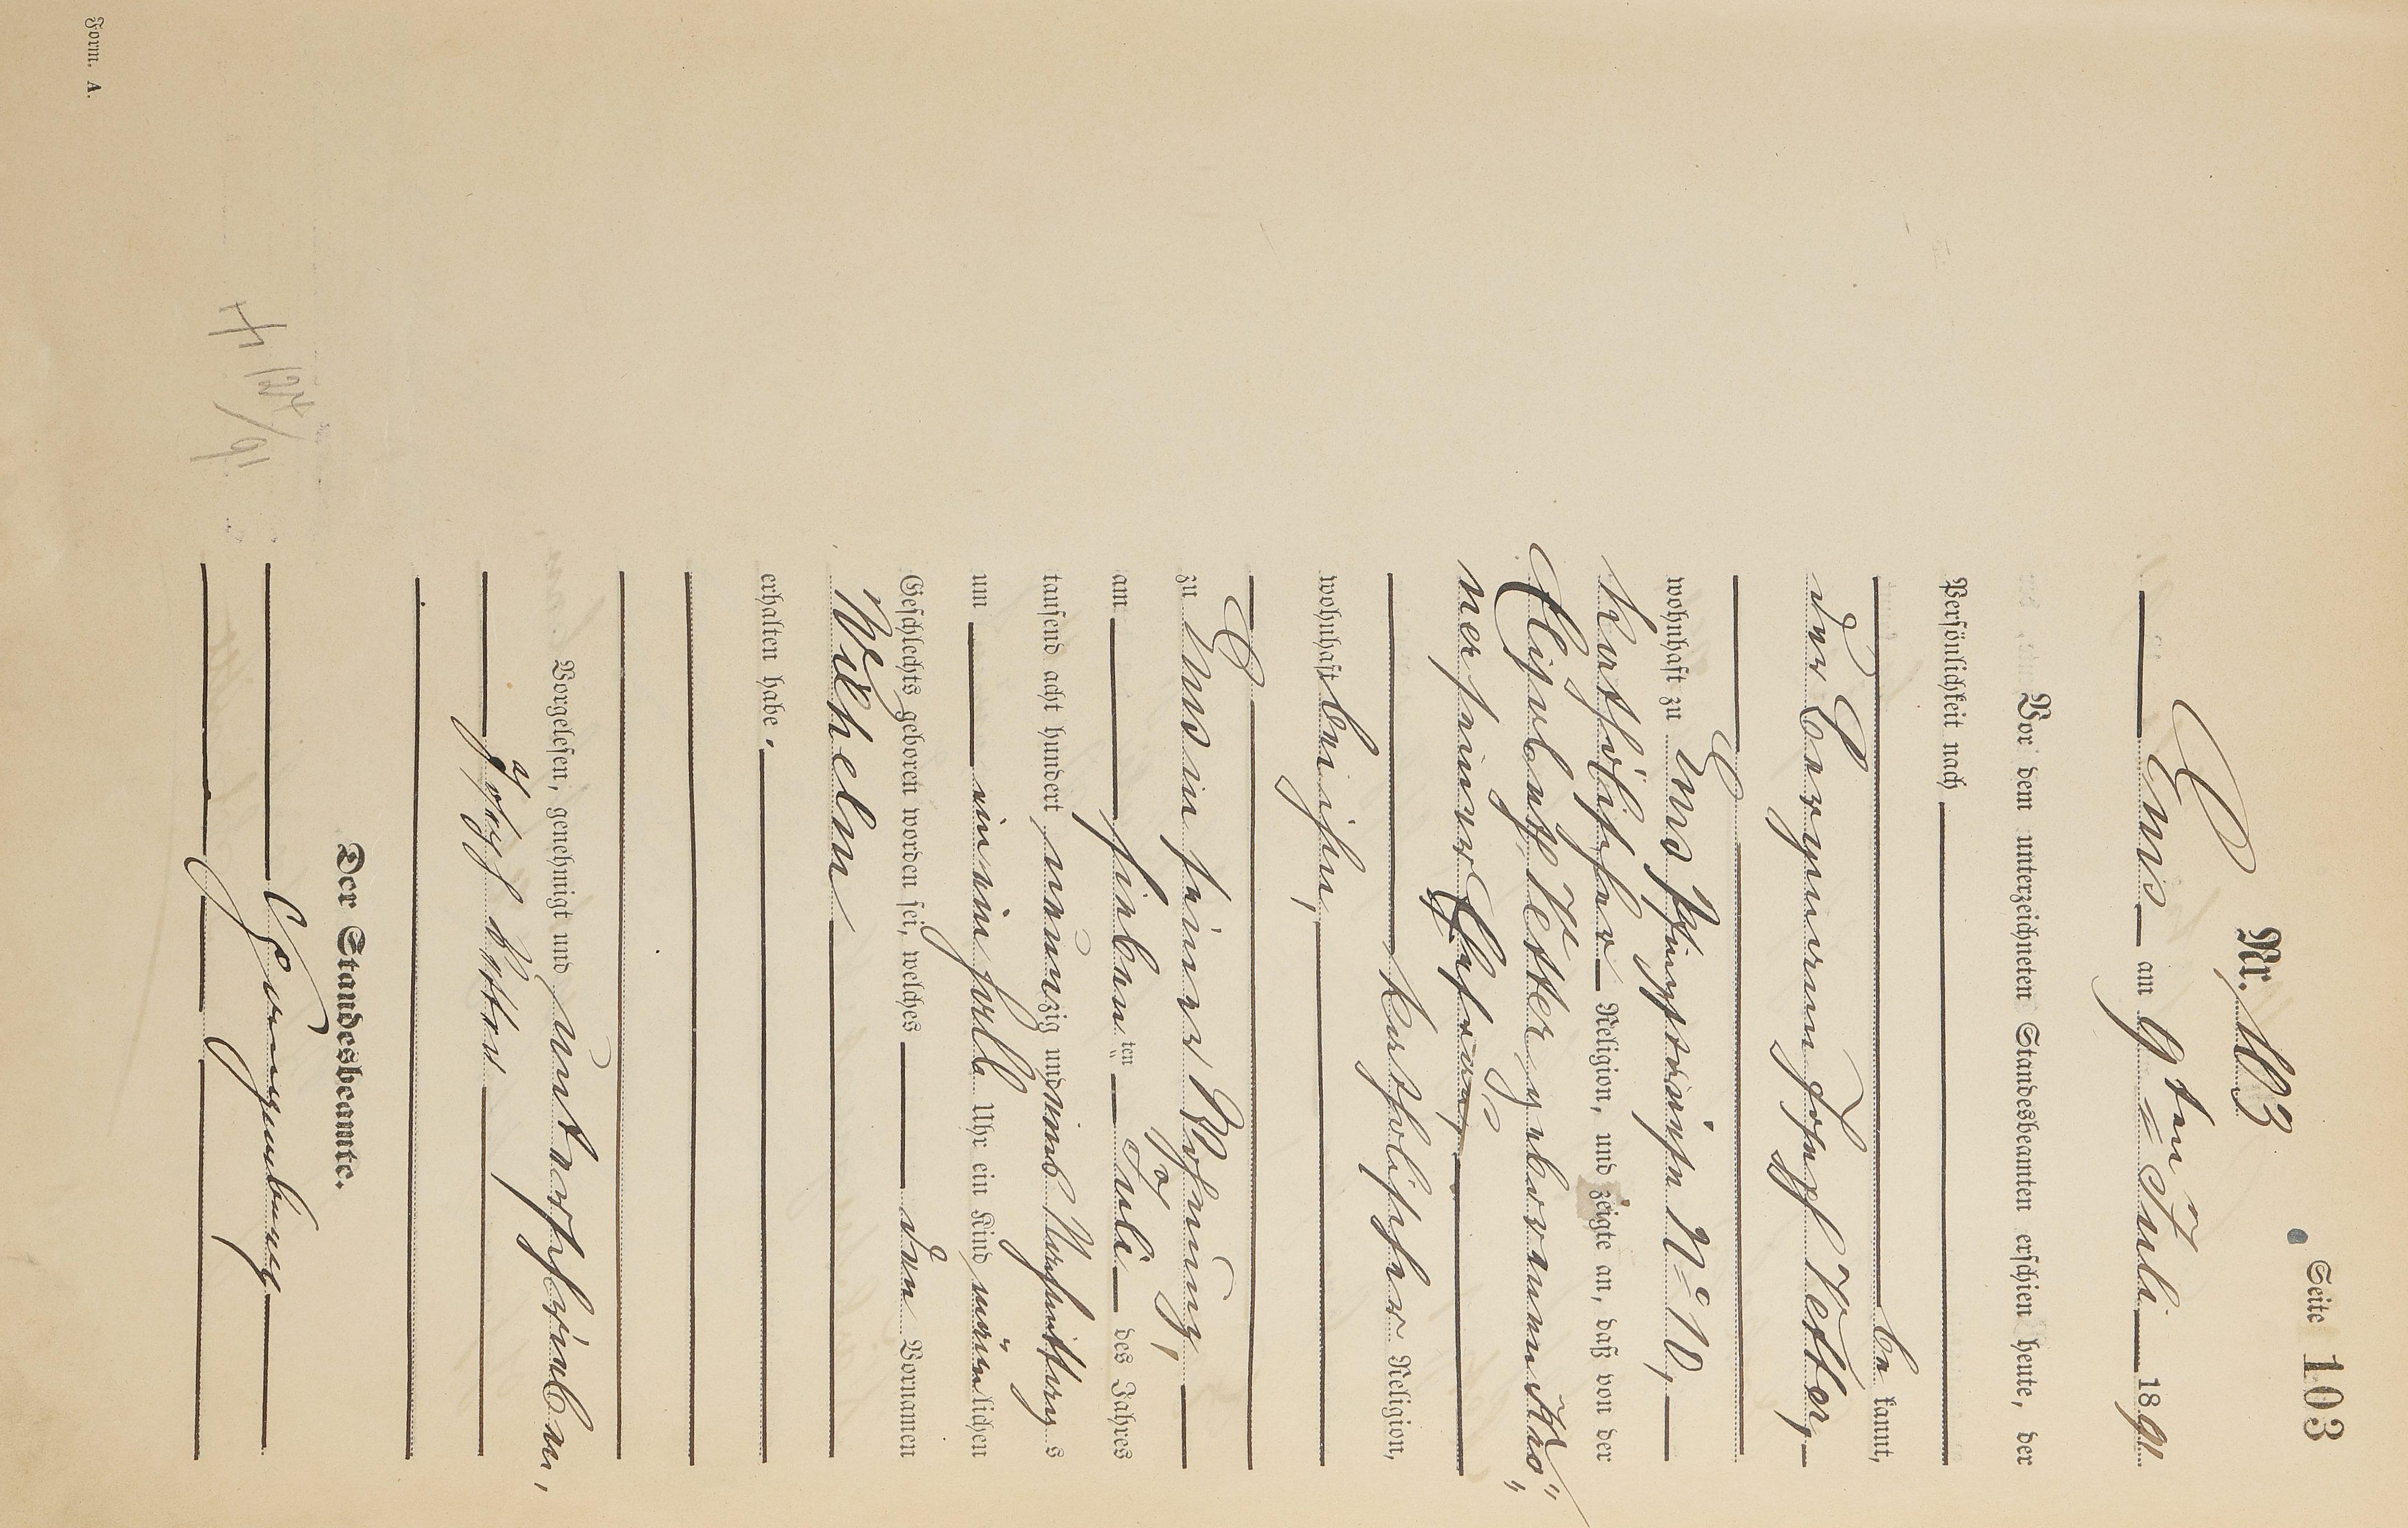 Seite 103
Nr. 103
Ems am 9ten Juli 1891
Vor dem unterzeichneten Standesbeamten erschien heute, der
Persönlichkeit nach
be kannt,
der Bergmann Joseph Vetter,
wohnhaft zu Ems Pfingstwiese No 10,
katholischer Religion, und zeigte an, daß von der
Elisabeth Vetter geborenen Krö„
ner seiner Ehefrau,
katholischer Religion,
wohnhaft bei ihm,
zu Ems in seiner Wohnung,
am sieben ten Juli des Jahres
tausend acht hundert neunzig und eins Nachmittags
um ein ein halb Uhr ein Kind männ lichen
Geschlechts geboren worden sei, welches den Vornamen
Wilhelm
erhalten habe.
Vorgelesen, genehmigt und unterschrieben,
Joseph Vetter
Der Standesbeamte.
124/91
Form. A.